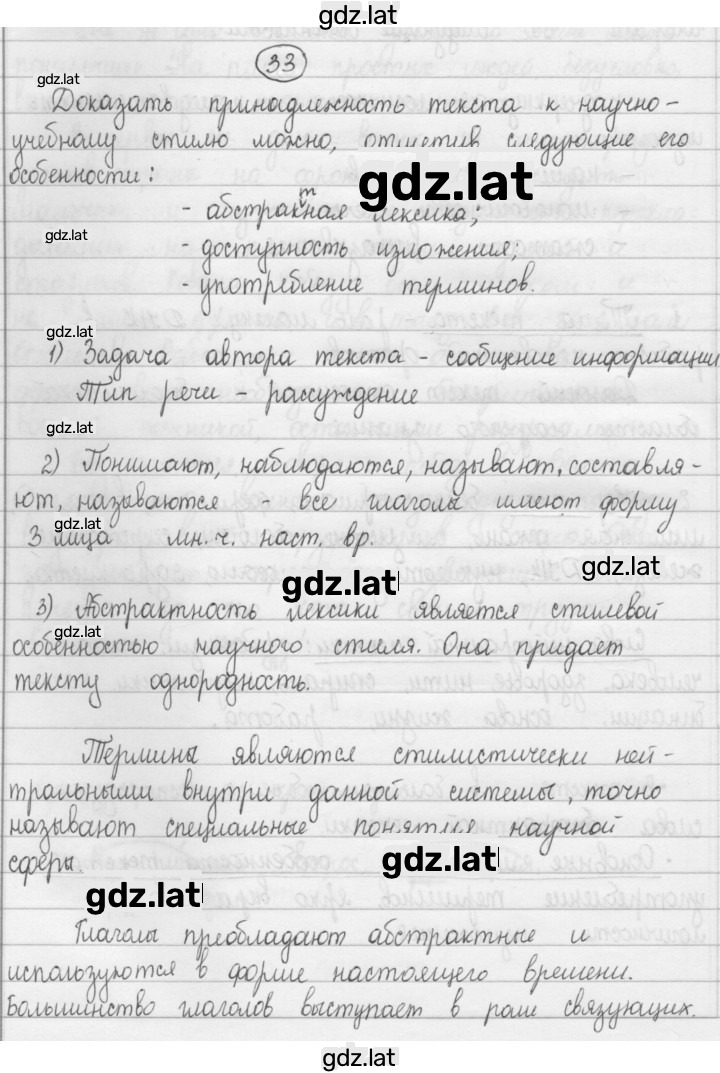 gdz.lat
33
gdz.lat
Доказать принадлежность текста к научно-
учебному стилю можно, отметив следующие его
особенности:
gdz.lat
- абстрактная лексика;
gdz.lat
- доступность изложения;
- употребление терминов.
gdz.lat
1) Задача автора текста - сообщение информации
Тип речи - рассуждение
gdz.lat
2) Понимают, наблюдаются, называют, составля-
ют, называются - все глаголы имеют форму
3 лица мн. ч. наст. вр.
gdz.lat
gdz.lat
3) Абстрактность лексики является стилевой
gdz.lat
особенностью научного стиля. Она придает
тексту однородность.
Термины являются стилистически ней-
тральными внутри данной системы, точно
называют специальные понятия научной
сферы.
gdz.lat
gdz.lat
Глаголы преобладают абстрактные и
используются в форме настоящего времени.
Большинство глаголов выступает в роли связующих.
gdz.lat